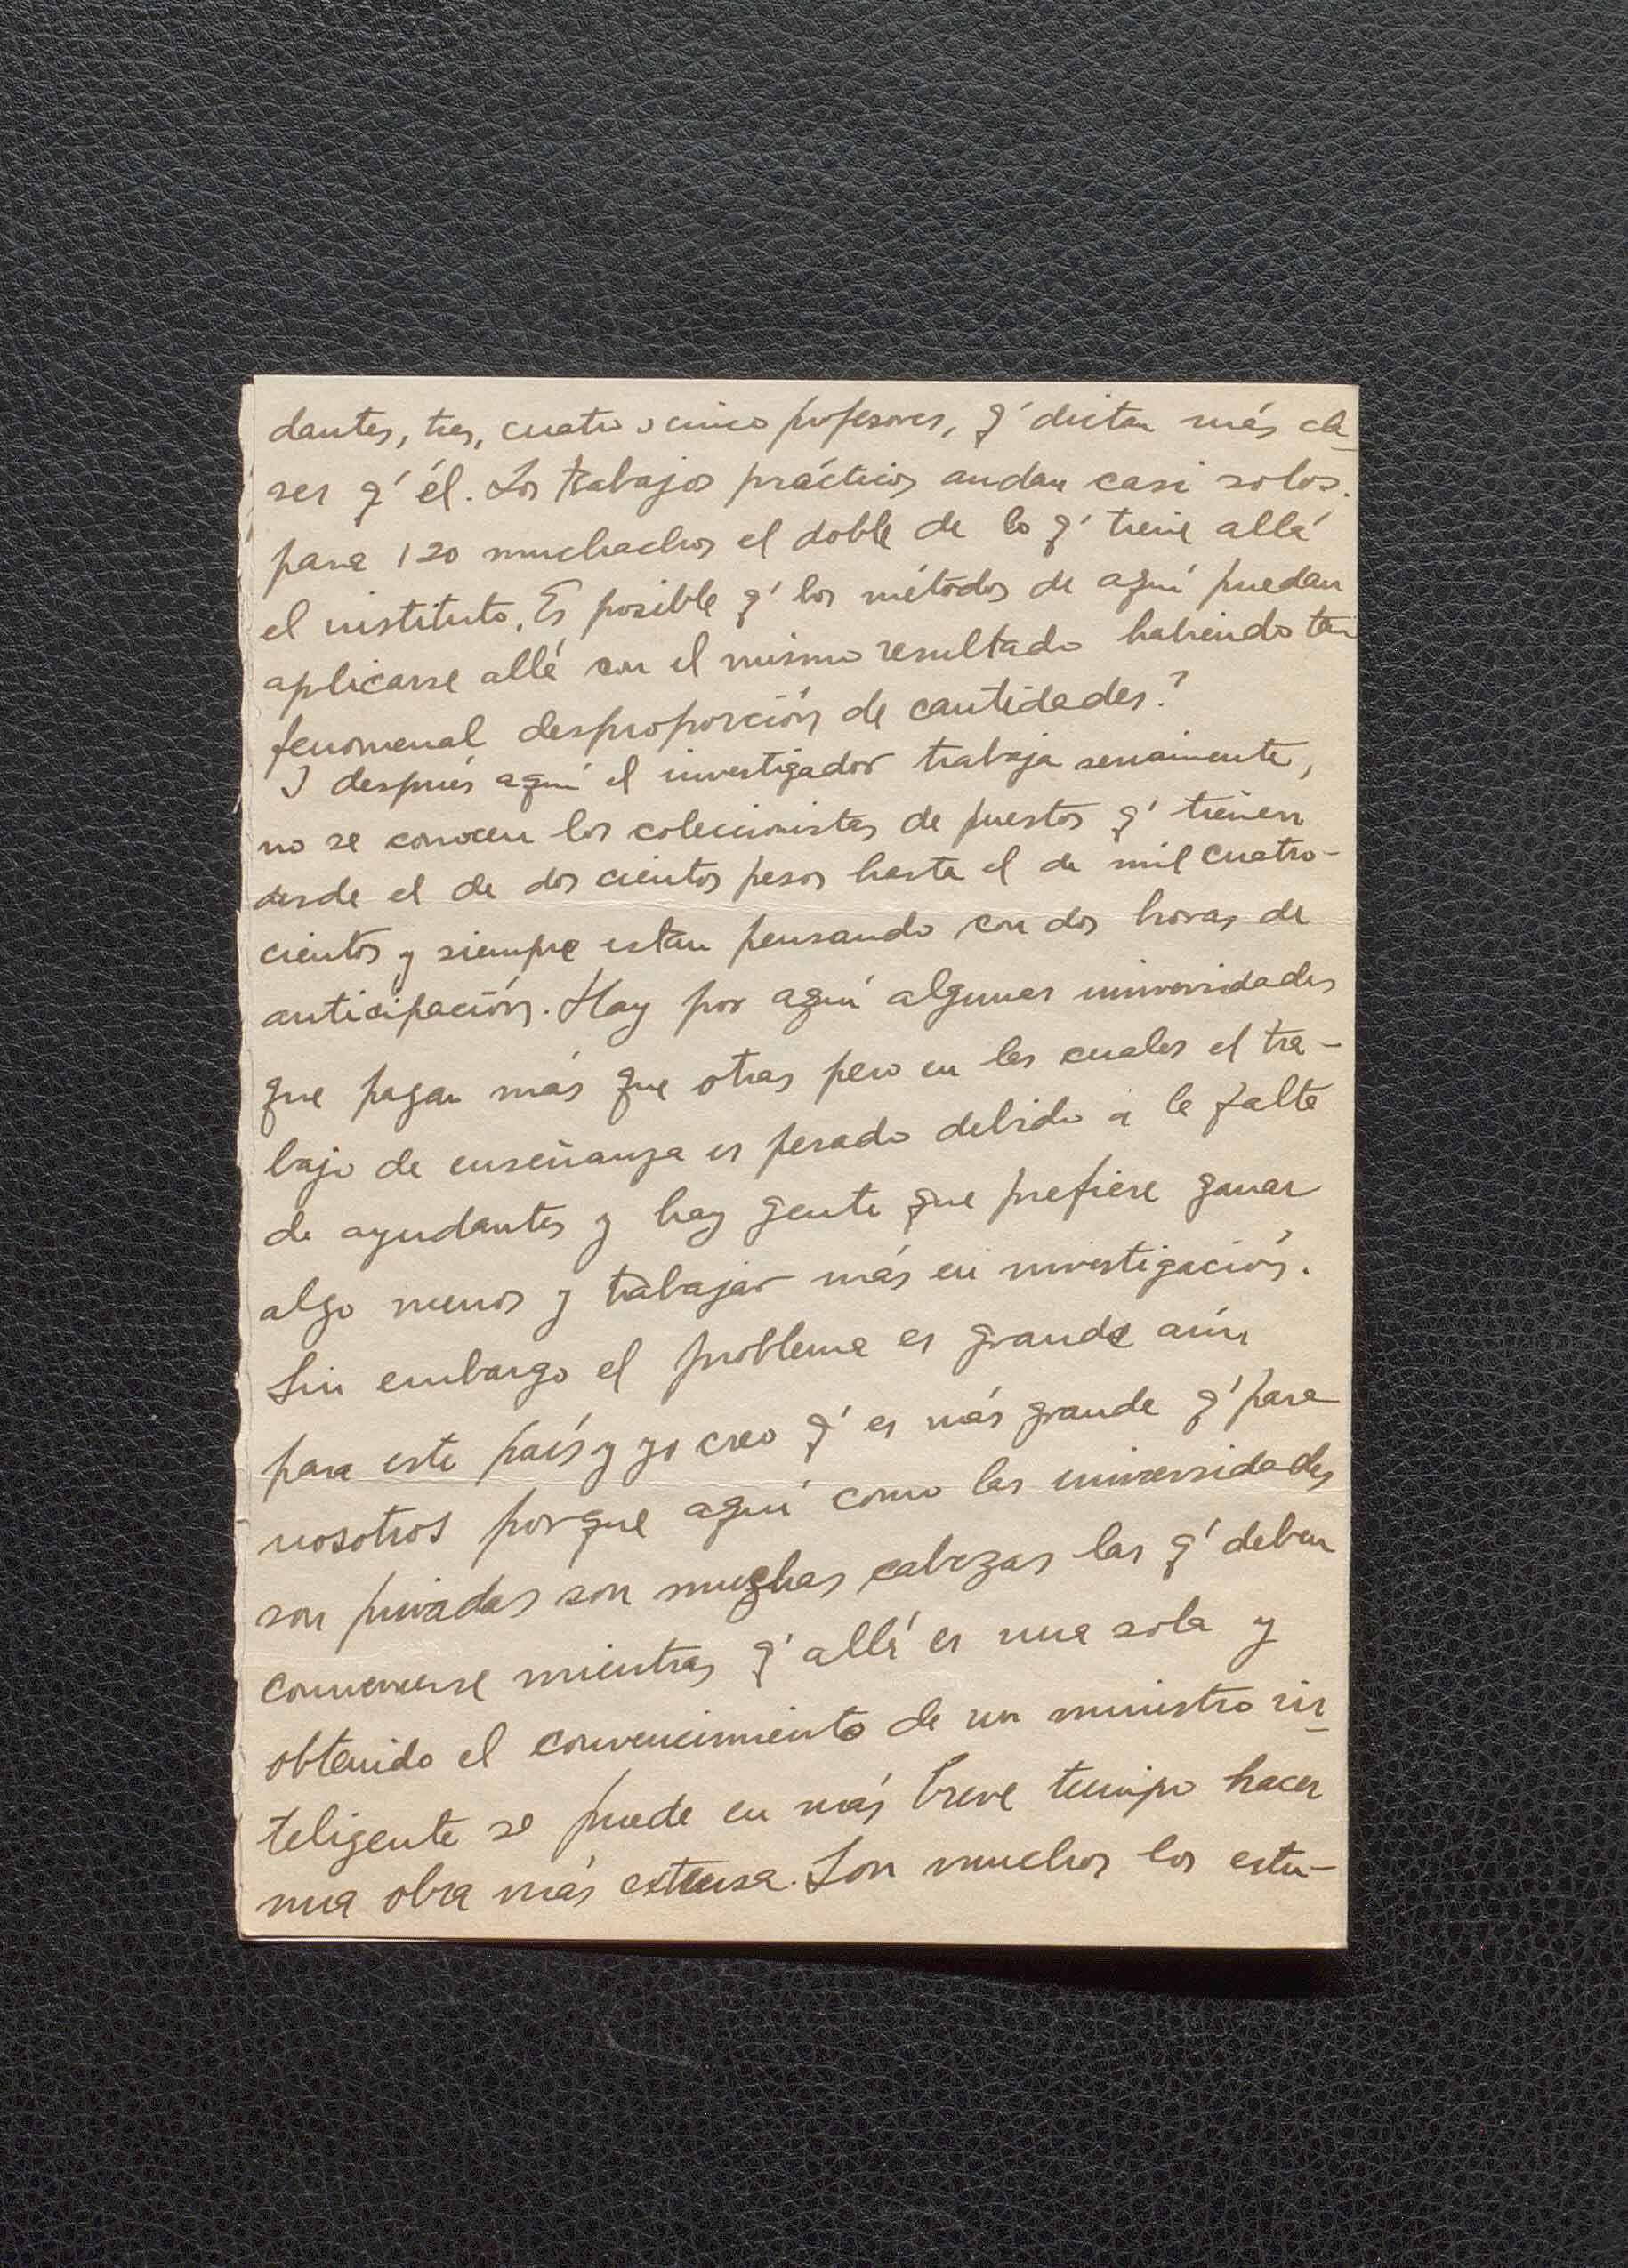 dantes, tres, cuatro o cinco profesores, q' dictan más cla-
ses q' él. Los trabajos prácticos andan casi solos.
para 120 muchachos el doble de lo q' tiene allá
el instituto. Es posible q' los métodos de aquí puedan
aplicarse allá con el mismo resultado habiendo tan
fenomenal desproporción de cantidades?
I después aquí el investigador trabaja seriamente,
no se conocen los coleccionistas de puestos q' tienen
desde el de dos cientos pesos hasta el de mil cuatro-
cientos y siempre estan pensando con dos horas de
anticipación. Hay por aquí algunas universidades
que pagan más que otras pero en las cuales el tra-
bajo de enseñanza es pesado debido a la falta
de ayudantes y hay gente que prefiere ganar
algo menos y trabajar más en investigación.
Sin embargo el problema es grande aún
para este país y yo creo q' es más grande q' para
nosotros porque aquí como las universidades
son privadas son muchas cabezas las q' deben
convencerse mientras q' allá es una sola y
obtenido el convencimiento de un ministro in-
teligente se puede en más breve tiempo hacer
una obra más extensa. Son muchos los estu-